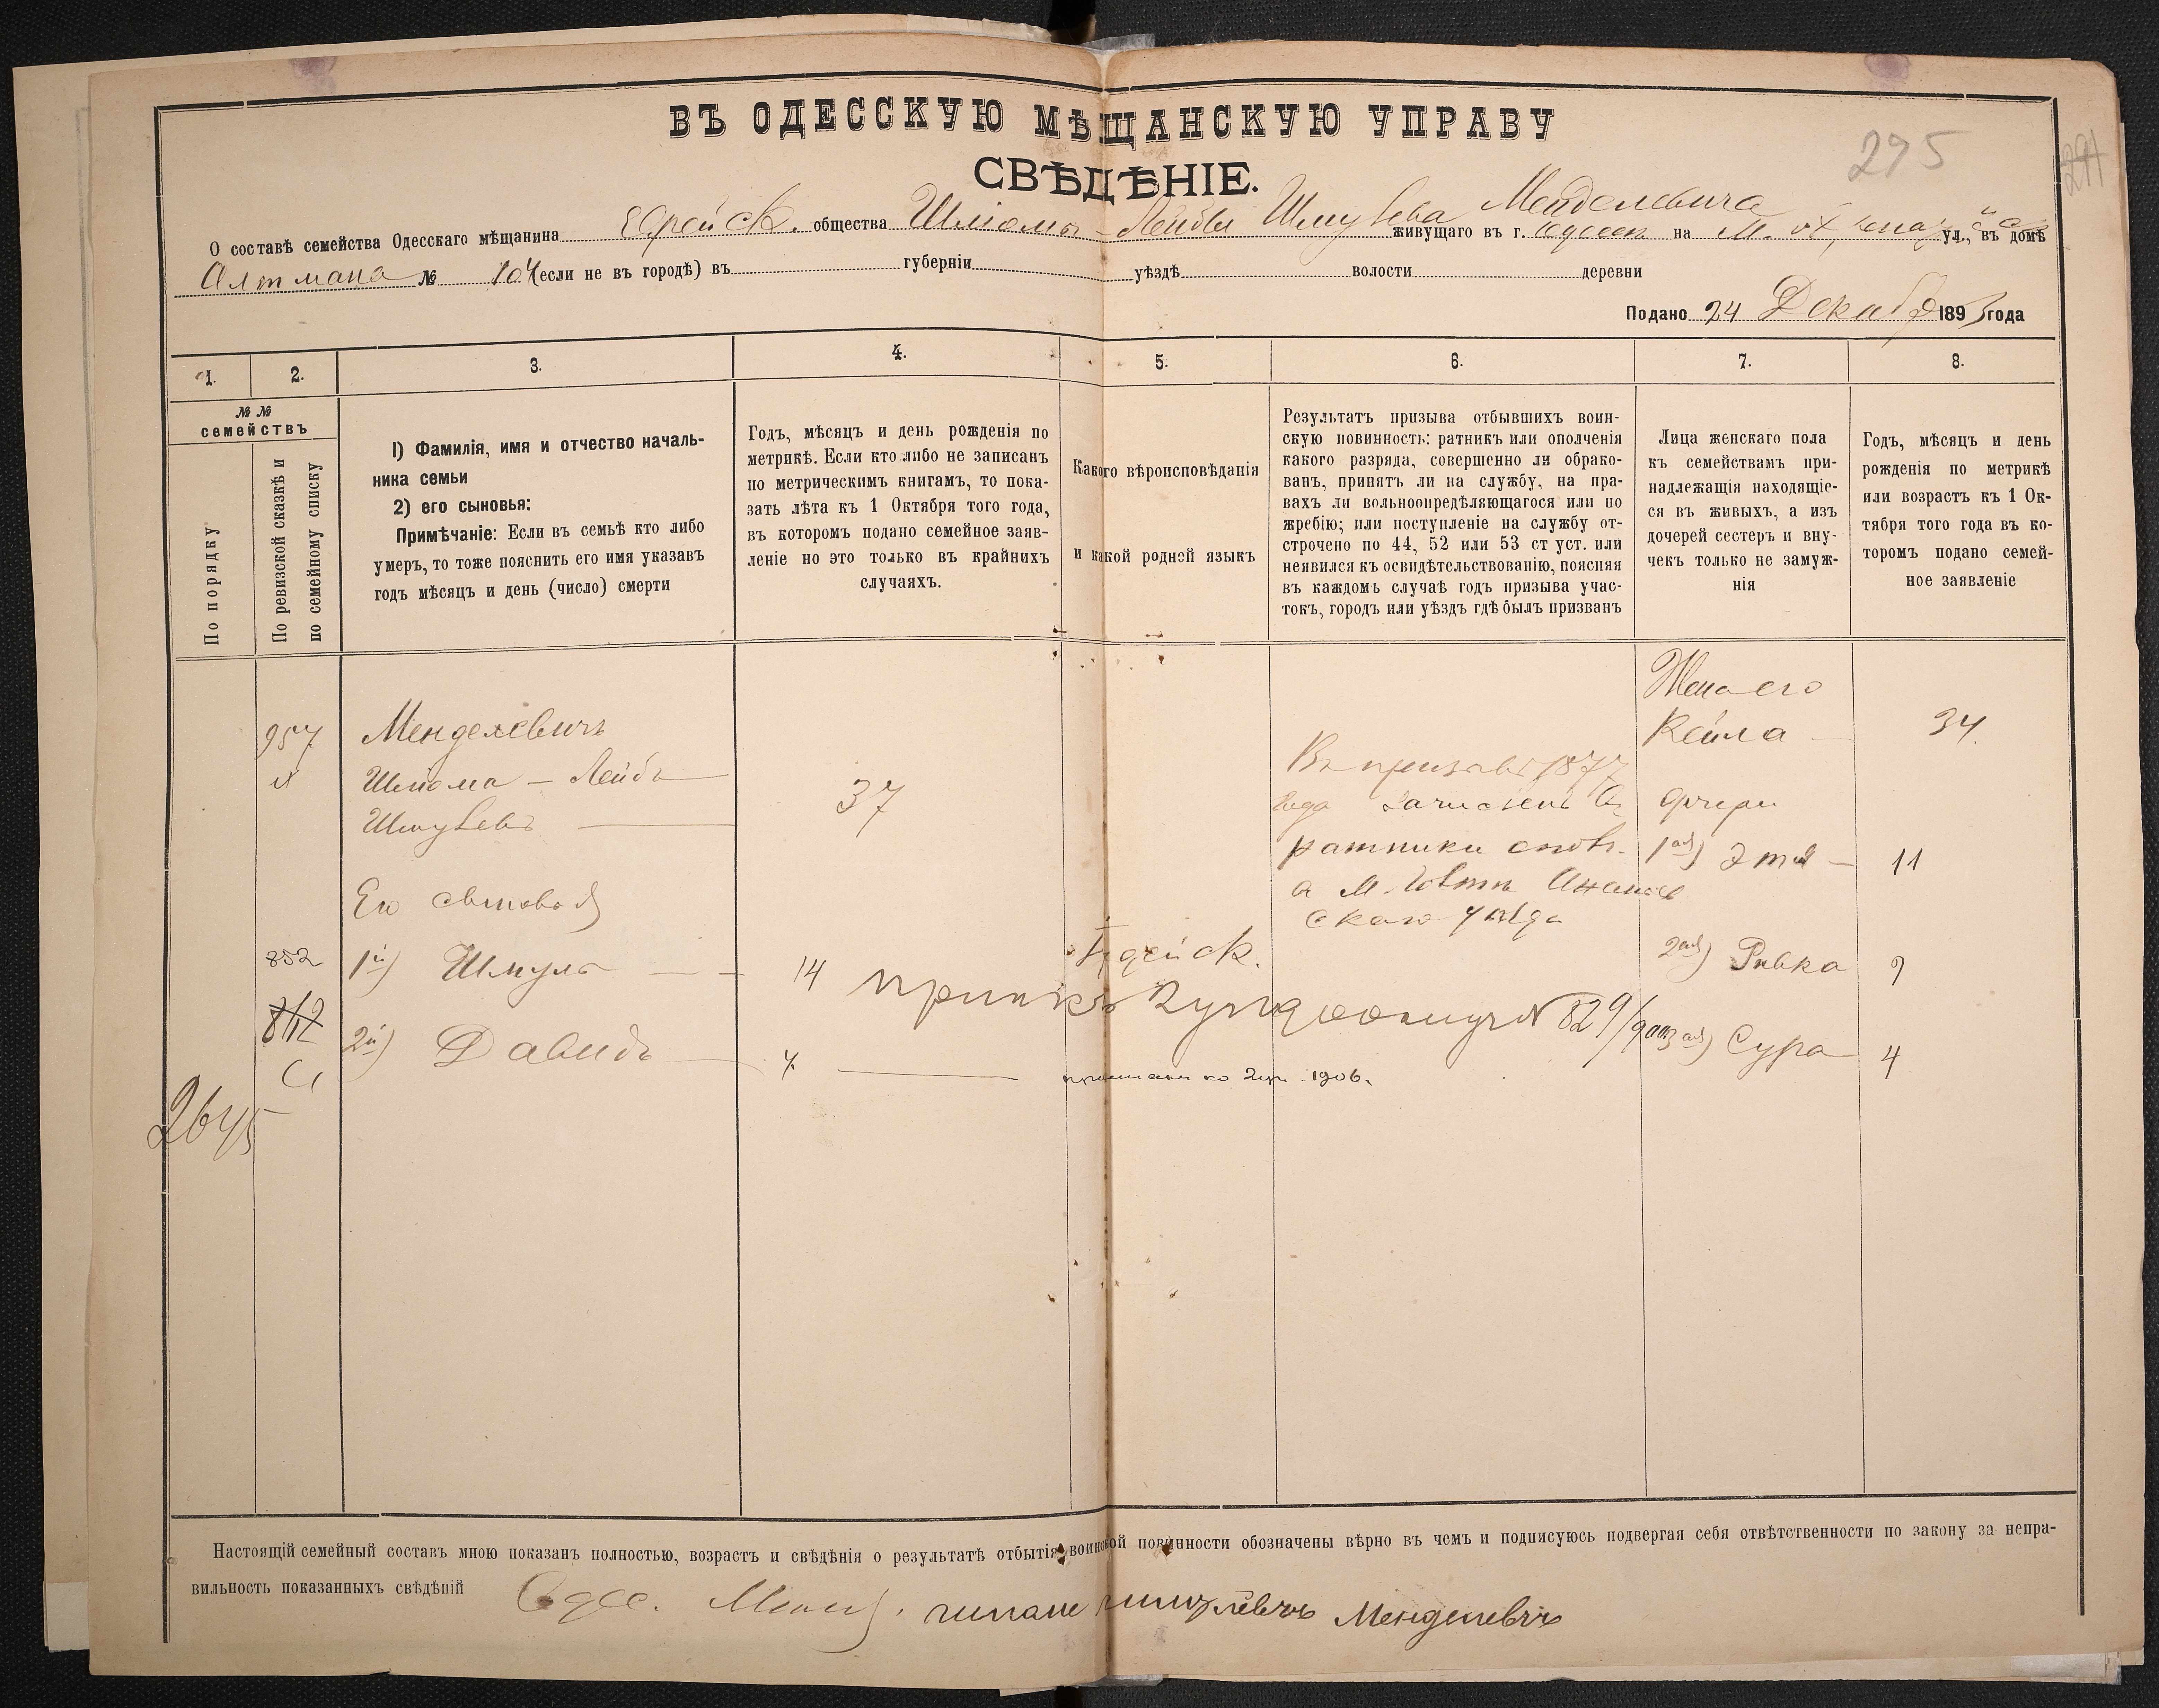 ВЪ ОДЕССКУЮ МѢЩАНСКУЮ УПРАВУ
СВѢДѢНІЕ.
295
О составѣ семейства Одесскаго мѣщанина Еврейск. общества Шліомы-Лейбы Шмулева Менделевича живущаго въ г. Одессѣ на М. ул., въ домѣ
Алтмана № 104 (если не въ городѣ) въ губерніи уѣздѣ волости деревни
Подано 24 Декабр 1893 года
1. 2. 3. 4. 5. 6. 7. 8.
№ №
семействъ
По порядку
По ревизской сказкѣ и
по семейному списку
1) Фамилія, имя и отчество началь-
ника семьи
2) его сыновья:
Примѣчаніе: Если въ семьѣ кто либо
умеръ, то тоже пояснить его имя указавъ
годъ мѣсяцъ и день (число) смерти
Годъ, мѣсяцъ и день рожденія по
метрикѣ. Если кто либо не записанъ
по метрическимъ книгамъ, то пока-
зать лѣта къ 1 Октября того года,
въ котороmъ подано семейное заяв-
леніе но это только въ крайнихъ
случаяхъ.
Какого вѣроисповѣданія
и какой родной языкъ
Результатъ призыва отбывшихъ воин-
скую повинность: ратникъ или ополченія
какого разряда, совершенно ли обрако-
ванъ, принятъ ли на службу, на пра-
вахъ ли вольноопредѣляющагося или по
жребію; или поступленіе на службу от-
строчено по 44, 52 или 53 ст уст. или
неявился къ освидѣтельствованію, поясняя
въ каждомъ случаѣ годъ призыва учас-
токъ, городъ или уѣздъ гдѣ былъ призванъ
Лица женскаго пола
къ семействамъ при-
надлежащія находящіе-
ся въ живыхъ, а изъ
дочерей сестеръ и вну-
чекъ только не замуж-
нія
Годъ, мѣсяцъ и день
рожденія по метрикѣ
или возрастъ къ 1 Ок-
тября того года въ ко-
торомъ подано семей-
ное заявленіе
957
Менделевичъ
Шліома - Лейба
Шмулевъ
37
Въ призывѣ 1877
года зачисленъ въ
ратники
скаго уѣзда
Жена его
Кейла 34
дочери
1ая) Этя - 11
Его сыновья
852
1й) Шмуль 14
Іудейск.
2ая) Ривка 9
842
2й) Давидъ 7.
№ 829/900
3ая) Сура 4
1906.
2645
Настоящій семейный составъ мною показанъ полностью, возрастъ и свѣдѣнія о результатѣ отбытія воинской повинности обозначены вѣрно въ чемъ и подписуюсь подвергая себя отвѣтственности по закону за непра-
вильность показанныхъ свѣдѣній Одес. Мѣщ. Менделевичъ